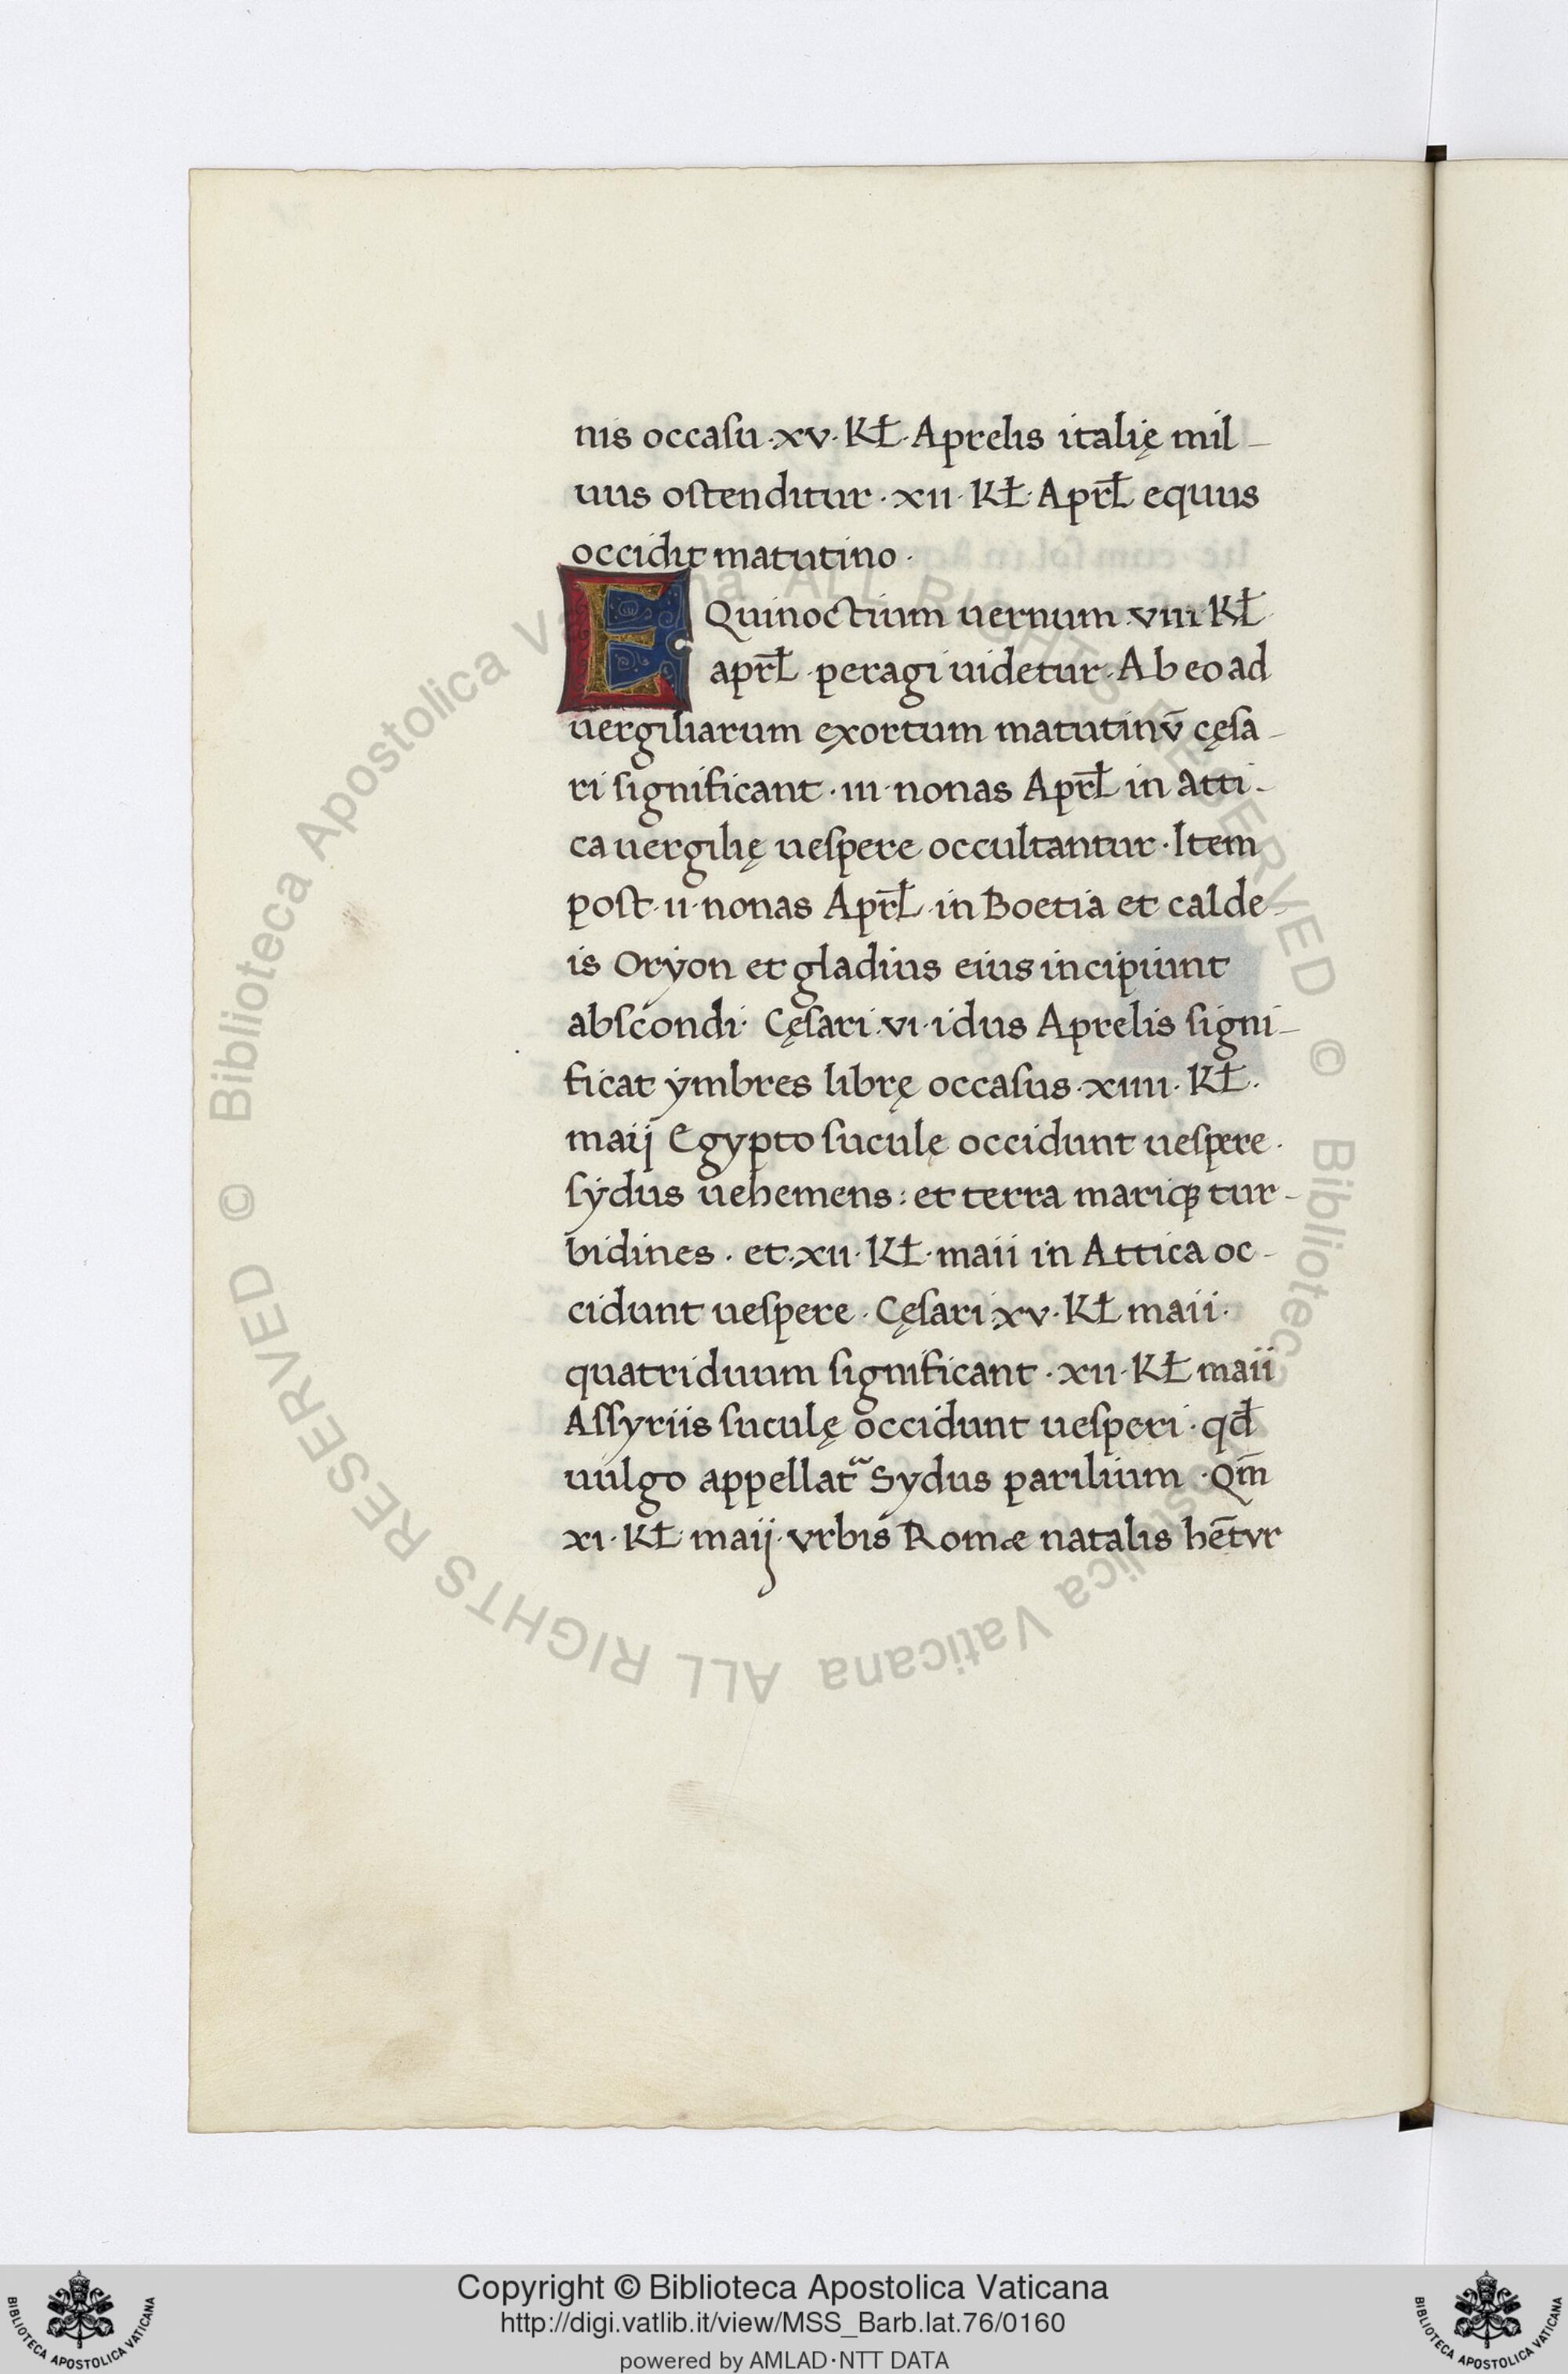 nis occaſu·xv·Kł·Aprelis italię mil-
uus oſtenditur·xii·Kł·Apr̄ł equus
occidit matutino·
EQuinoctium uernum·viii·Kł
apr̄ł·peragi uidetur·Ab eo ad
uergiliarum exortum matutinv̄ cęſa-
ri ſignificant·iii·nonas Apr̄ł in Atti-
ca uergilię ueſpere occultantur·Item
poſt·ii·nonas Apr̄ł·in Boetia et calde-
is Oryon et gladius eius incipiunt
abſcondi· Cęſari·vi·idus Aprelis ſigni-
ficat ymbres librę occaſus·xiiii·Kł·
maij Egypto ſuculę occidunt ueſpere·
ſydus uehemens: et terra mariqꝫ tur-
bidines·et·xii·Kł·maii in Attica oc-
cidunt ueſpere·Cęſari·xv·Kł maii·
quatriduum ſignificant·xii·Kł maii
Aſſyriis ſuculę occidunt ueſperi·qđ
uulgo appellat᷑ Sydus parilium·Qm̄
xi·Kł·maij·vrbis Romæ natalis hēt᷑vr
Biblioteca Apostolica Vaticana ALL RIGHTS RESERVED © Biblioteca Apostolica Vaticana ALL RIGHTS RESERVED ©
Copyright © Biblioteca Apostolica Vaticana
http://digi.vatlib.it/view/MSS_Barb.lat.76/0160
powered by AMLAD·NTT DATA
BIBLIOTECA APOSTOLICA VATICANA
BIBLIOTECA APOSTOLICA VATICANA